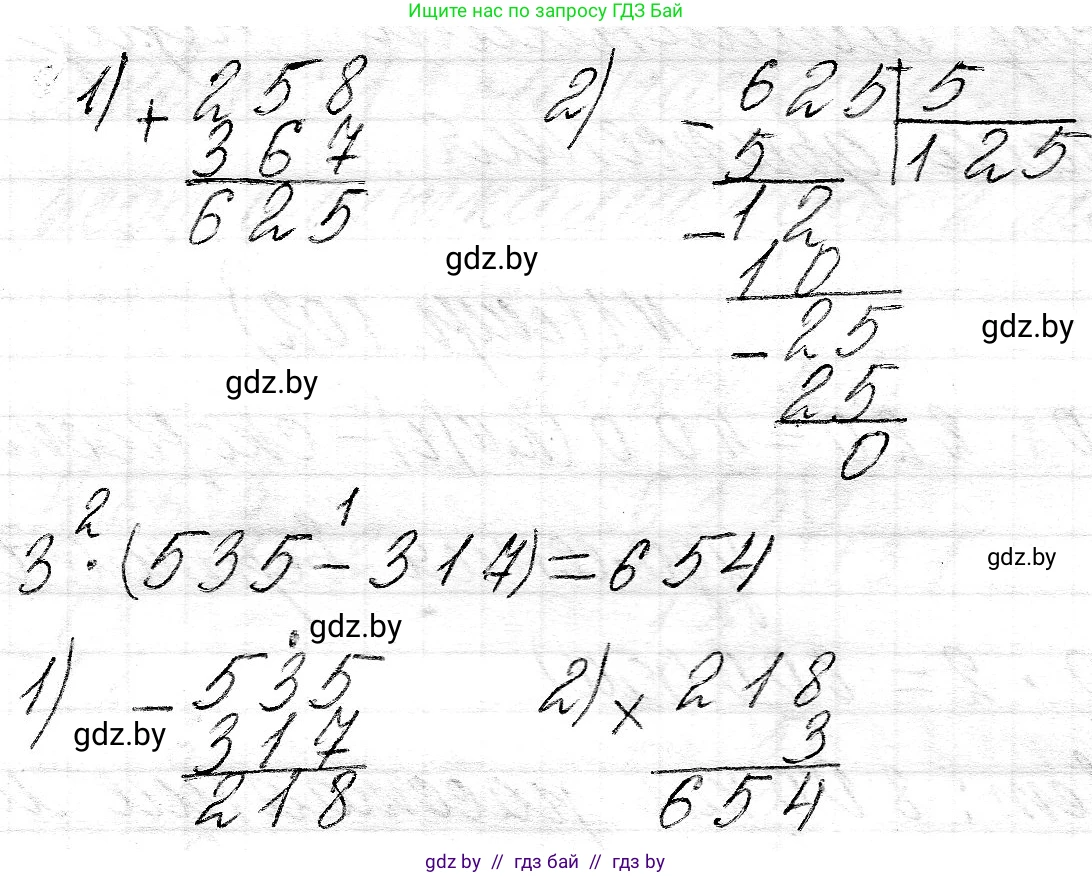 Ищите нас по запросу ГДЗ Бай
1) + 258
367
625
2) - 625 | 5
5 | 125
- 12
10
- 25
25
0
gdz.by
gdz.by
gdz.by
2 1
3 · (535 - 317) = 654
gdz.by
gdz.by
1) - 535
317
218
gdz.by
2) × 218
3
654
gdz.by // гдз бай // гдз by